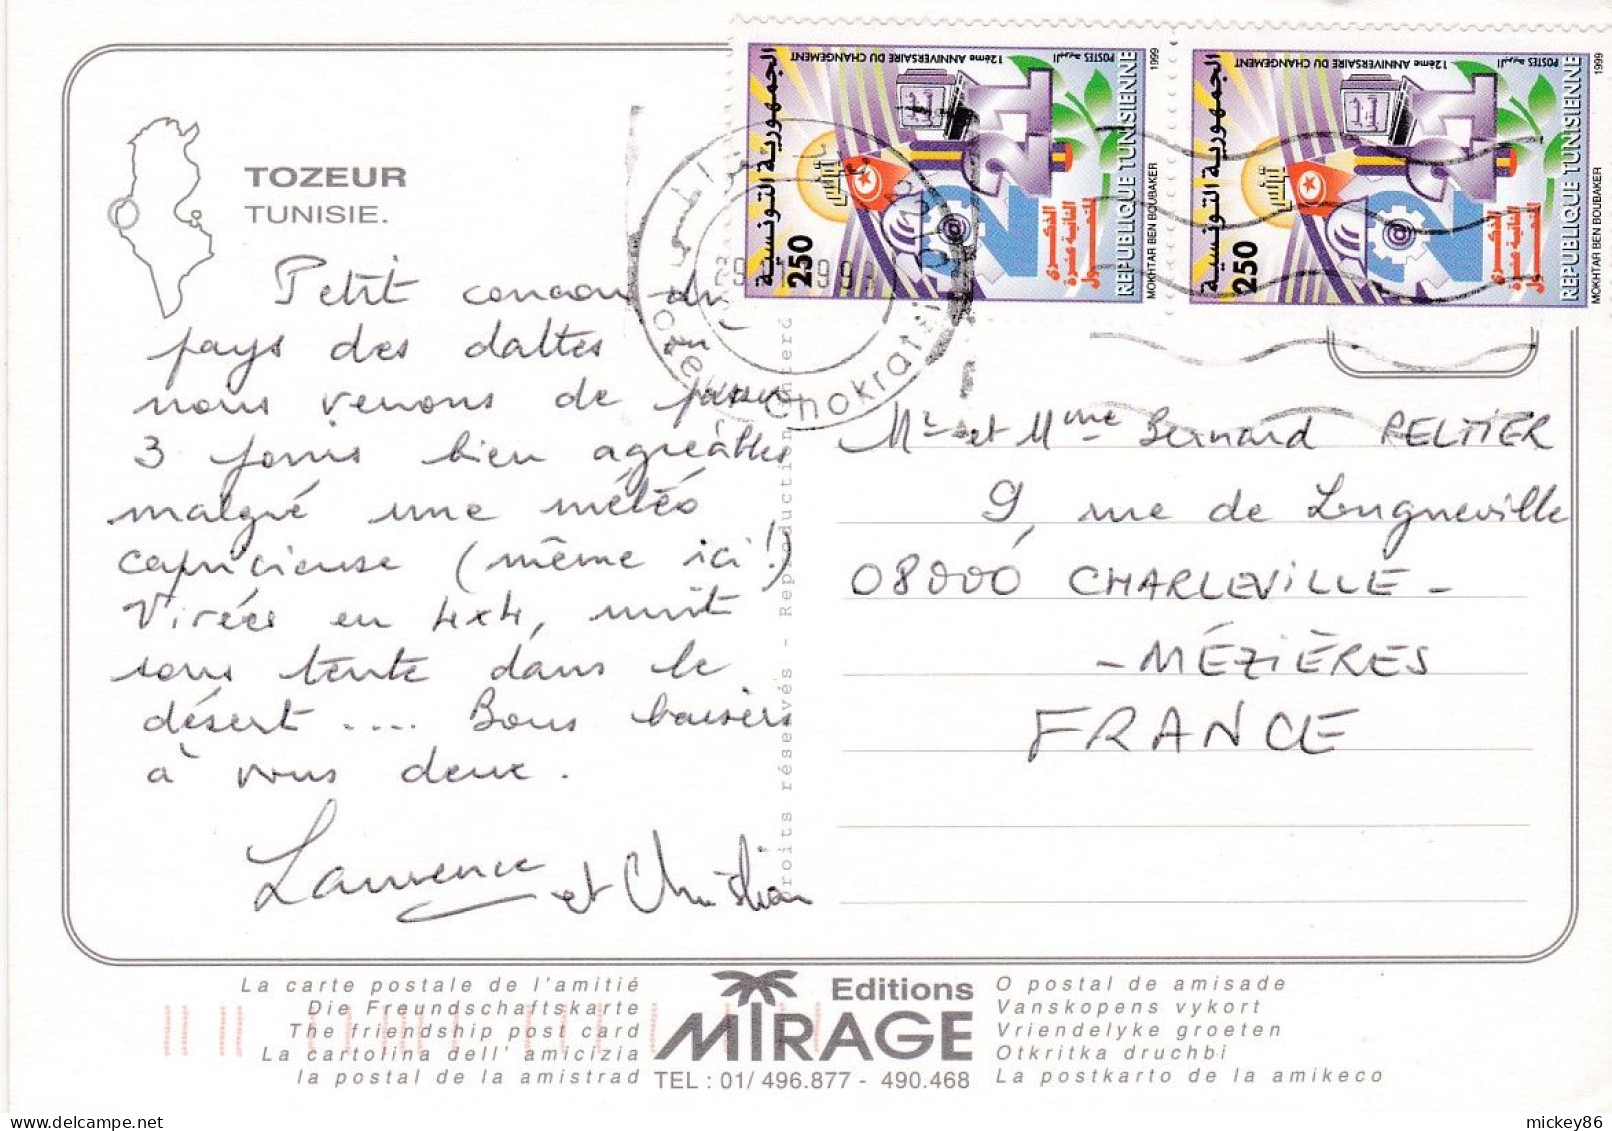 TOZEUR
TUNISIE.
Petit coucou du
pays des dattes où
nous venons de passer
3 jours bien agréables
malgré une météo
capricieuse (même ici !)
Virées en 4x4, nuit
sous tente dans le
désert .... Bons baisers
à vous deux.
Laurence et Christian
Droits réservés - Reproduction interd
Mr et Mme Bernard PELTIER
9, rue de Longueville
08000 CHARLEVILLE -
- MÉZIÈRES
FRANCE
الجمهورية التونسية
250
12ème ANNIVERSAIRE DU CHANGEMENT
POSTES البريد
تونس
21
@
الذكرى
الثانية عشرة
للتحول
REPUBLIQUE TUNISIENNE
MOKHTAR BEN BOUBAKER
1999
الجمهورية التونسية
250
12ème ANNIVERSAIRE DU CHANGEMENT
POSTES البريد
تونس
21
@
الذكرى
الثانية عشرة
للتحول
REPUBLIQUE TUNISIENNE
MOKHTAR BEN BOUBAKER
1999
Tozeur Chokratsi
La carte postale de l'amitié
Die Freundschaftskarte
The friendship post card
La cartolina dell' amicizia
la postal de la amistrad
Editions
MIRAGE
TEL : 01/ 496.877 - 490.468
O postal de amisade
Vanskopens vykort
Vriendelyke groeten
Otkritka druchbi
La postkarto de la amikeco
mickey86